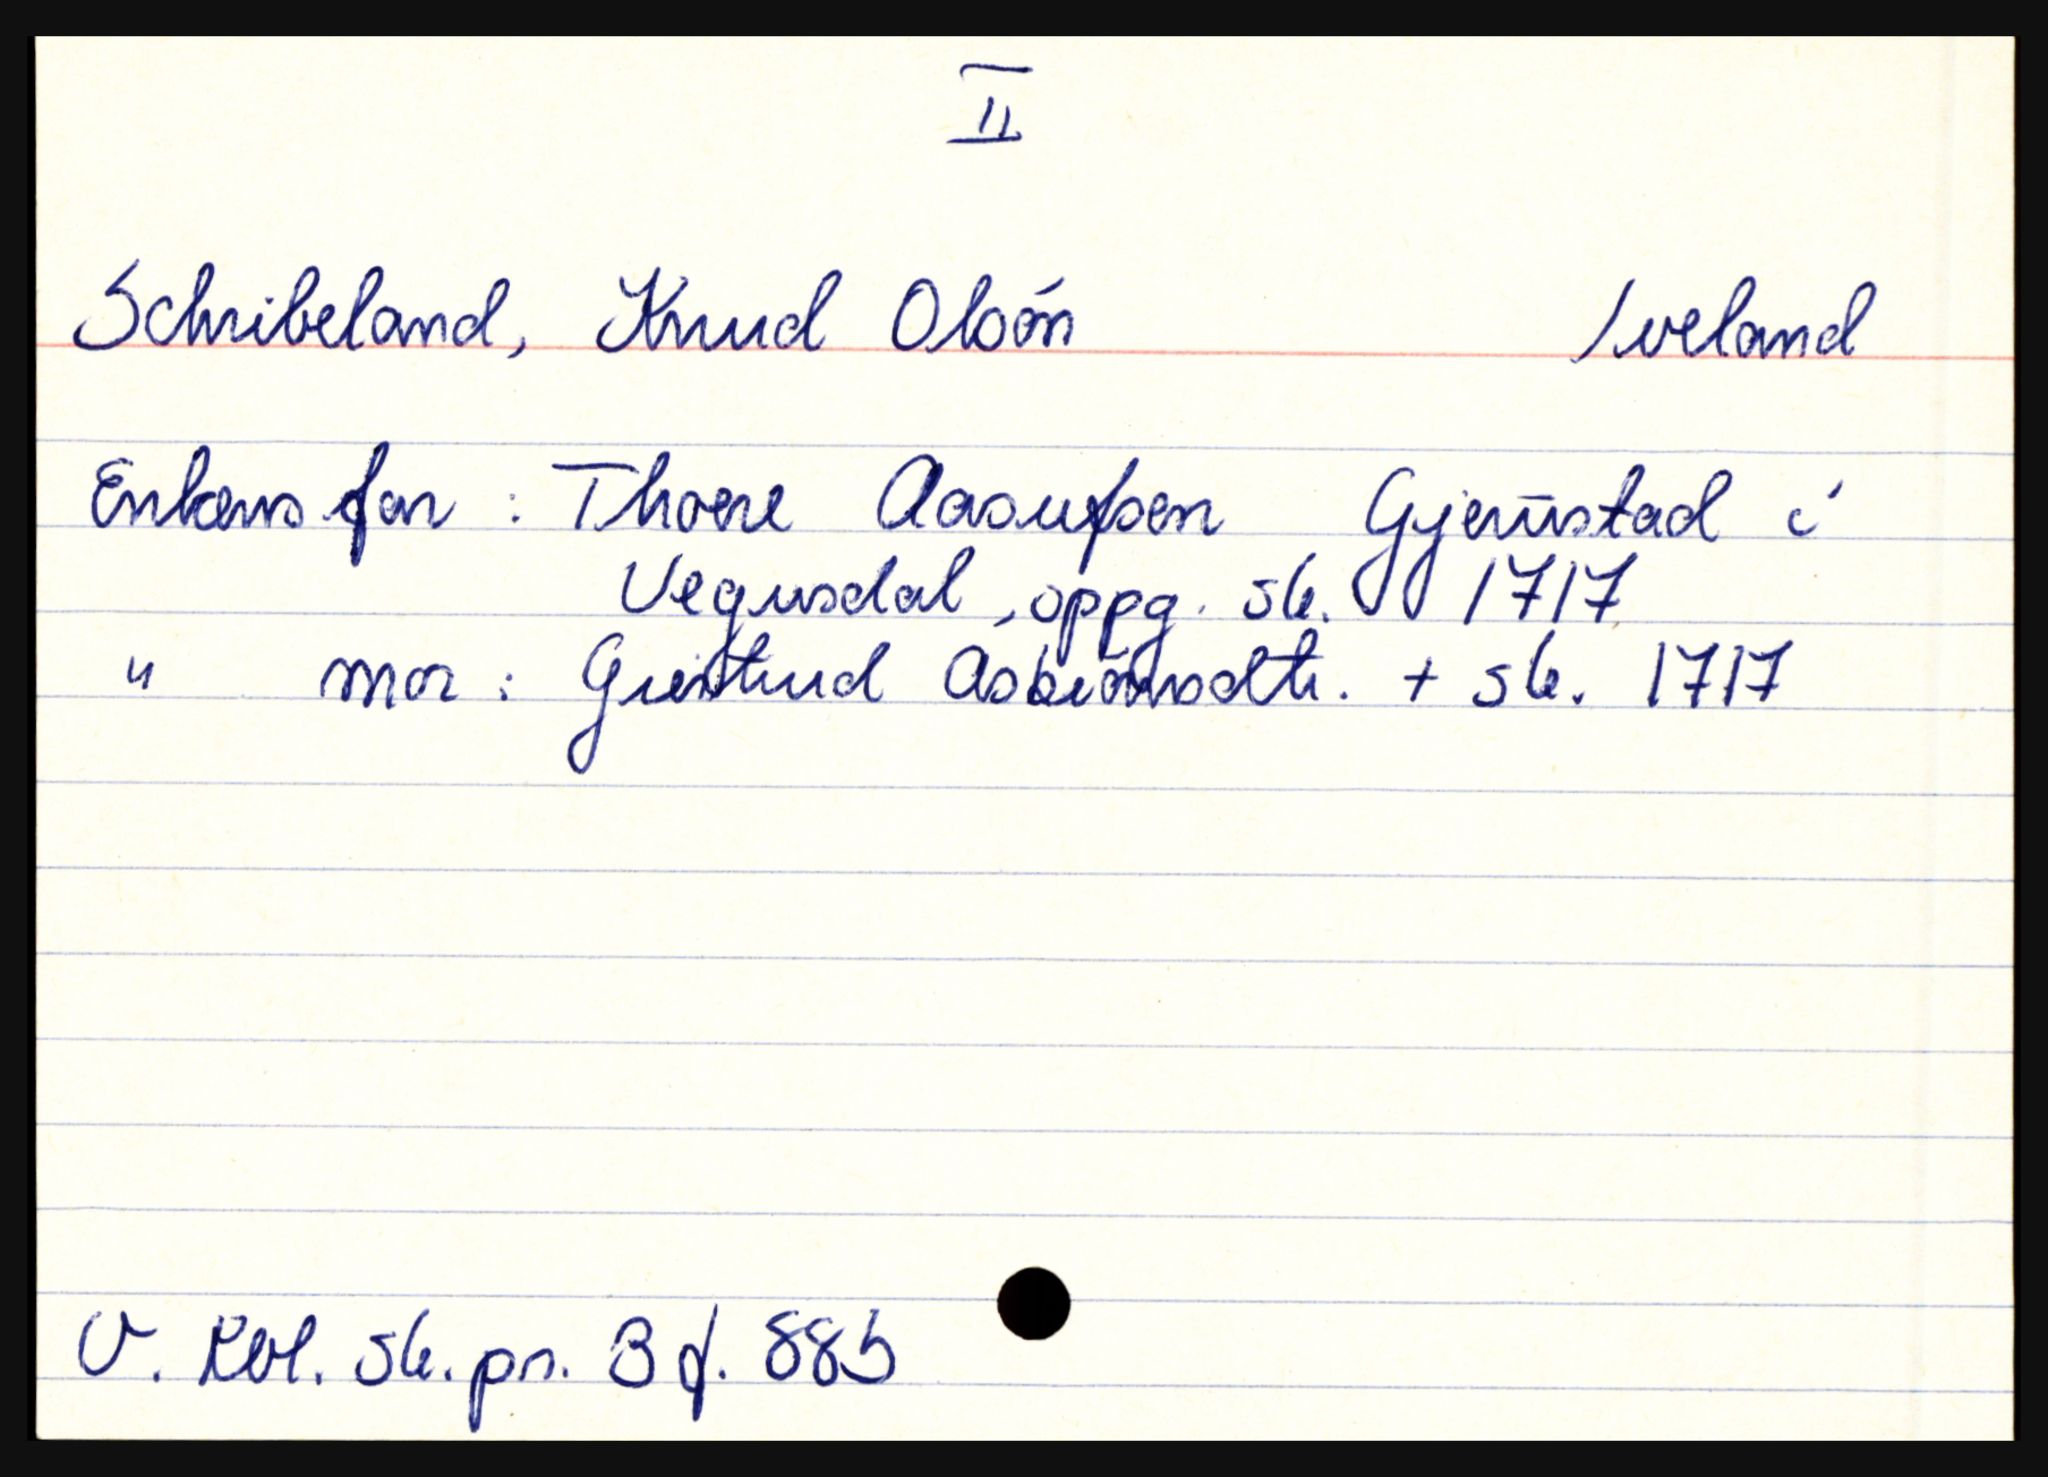 II
Schribeland, Knud Olsön Iveland
Enkens far : Thore Aasufsen Gjerustad i
Vegusdal, oppg. sk. 1717
" mor : Giertrud Asbiörnsdtr. + sk. 1717
V. Rbl. sk. pr. 3 f. 883